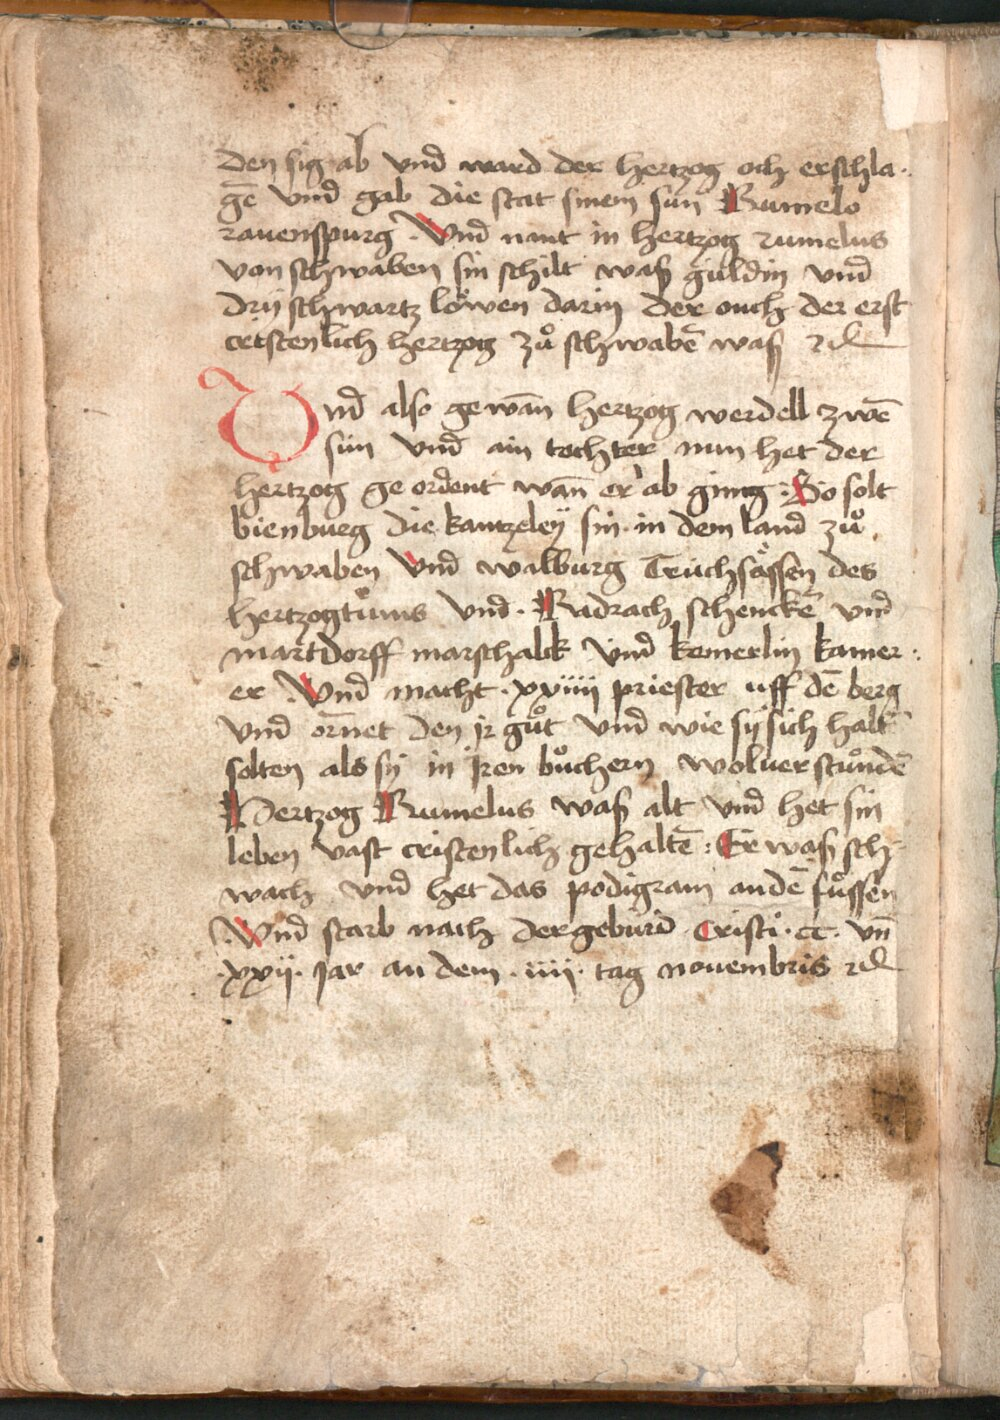 den sig ab vnd ward der hertzog och erschla-
gē vnd gab die stat sinem sun Rumelo
rauenspurg. Vnd nant in hertzog rumelus
von schwaben sin schilt waß guldin vnd
drij schwartz löwen darin der ouch der erst
cristenlich hertzog zů schwabē waß ⁊c
Vnd also gewan̄ hertzog werdell zwē
sün vnd ain tochter nun het der
hertzog ge ordent wan̄ er ab ging. So solt
bienburg die kantzeleÿ sin. in dem land zů
schwaben Vnd walburg Truchsässen des
hertzogtůms vnd. Radrach schenckē vnd
martdorff marschalck vnd kemerlin kamer:
er. Vnd macht. xxiiij priester uff dē berg
vnd orn̄et den jr gůt vnd wie sÿ sich haltē
solten als sÿ in jren bůchern wol verstůndē
Hertzog Rumelus waß alt vnd het sin
leben vast cristenlich gehaltē: Er waß sch-
wach vnd het das podigram an dē fůssen
.Vnd starb nach der geburd Cristi. cc. vn̄
.xxij. Jar an dem. iiij. tag nouembris ⁊c